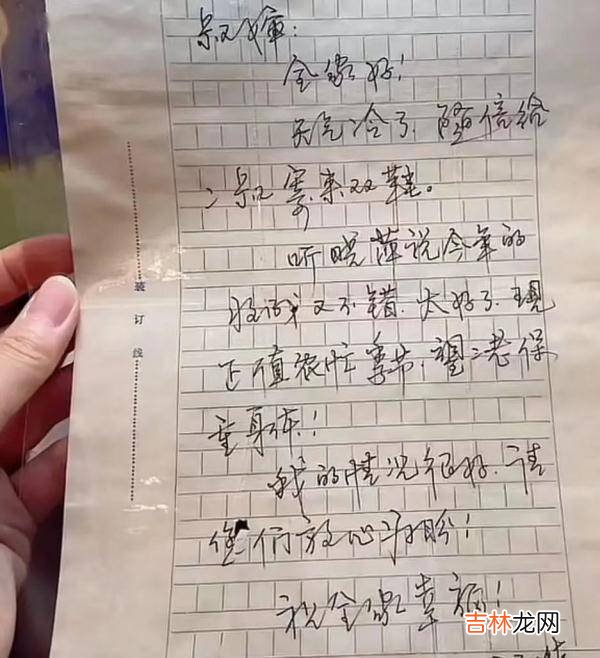 叔叔婶:
全家好!
天气冷了, 随信给
二叔寄来双鞋。
听晓萍说今年的
收成又不错, 太好了, 现
正值农忙季节, 望二老保
重身体!
我的情况很好, 请
你们放心勿盼!
祝全家幸福!
装订线
吉林龙网